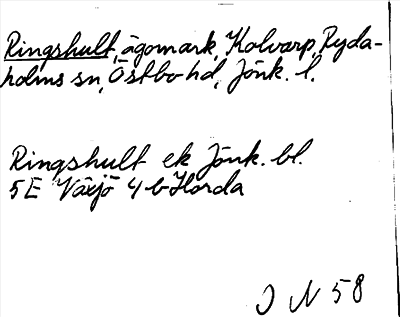 Ringshult, ägomark, Kolvarp, Ryda-
holms sn, Östbo hd, Jönk. l.
Ringshult ek Jönk. bl.
5E Växjö 4b Horda
J N 58